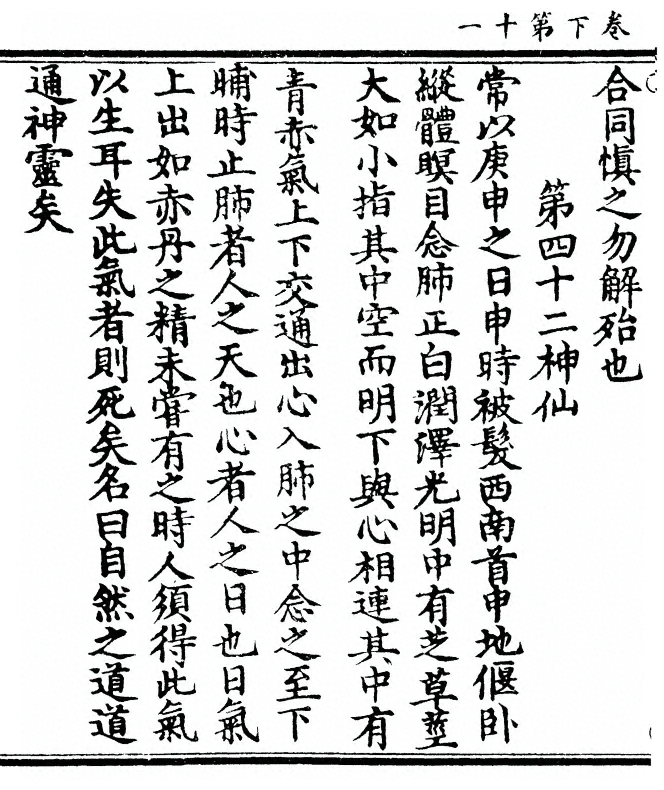 卷下第十一
合同慎之勿解殆也
第四十二神仙
常以庚申之日申時被髮西南首申地偃卧
縱體瞑目念肺正白潤澤光明中有芝草莖
大如小指其中空而明下與心相連其中有
青赤氣上下交通出心入肺之中念之至下
晡時止肺者人之天也心者人之日也日氣
上出如赤丹之精未嘗有之時人須得此氣
以生耳失此氣者則死矣名曰自然之道道
通神靈矣